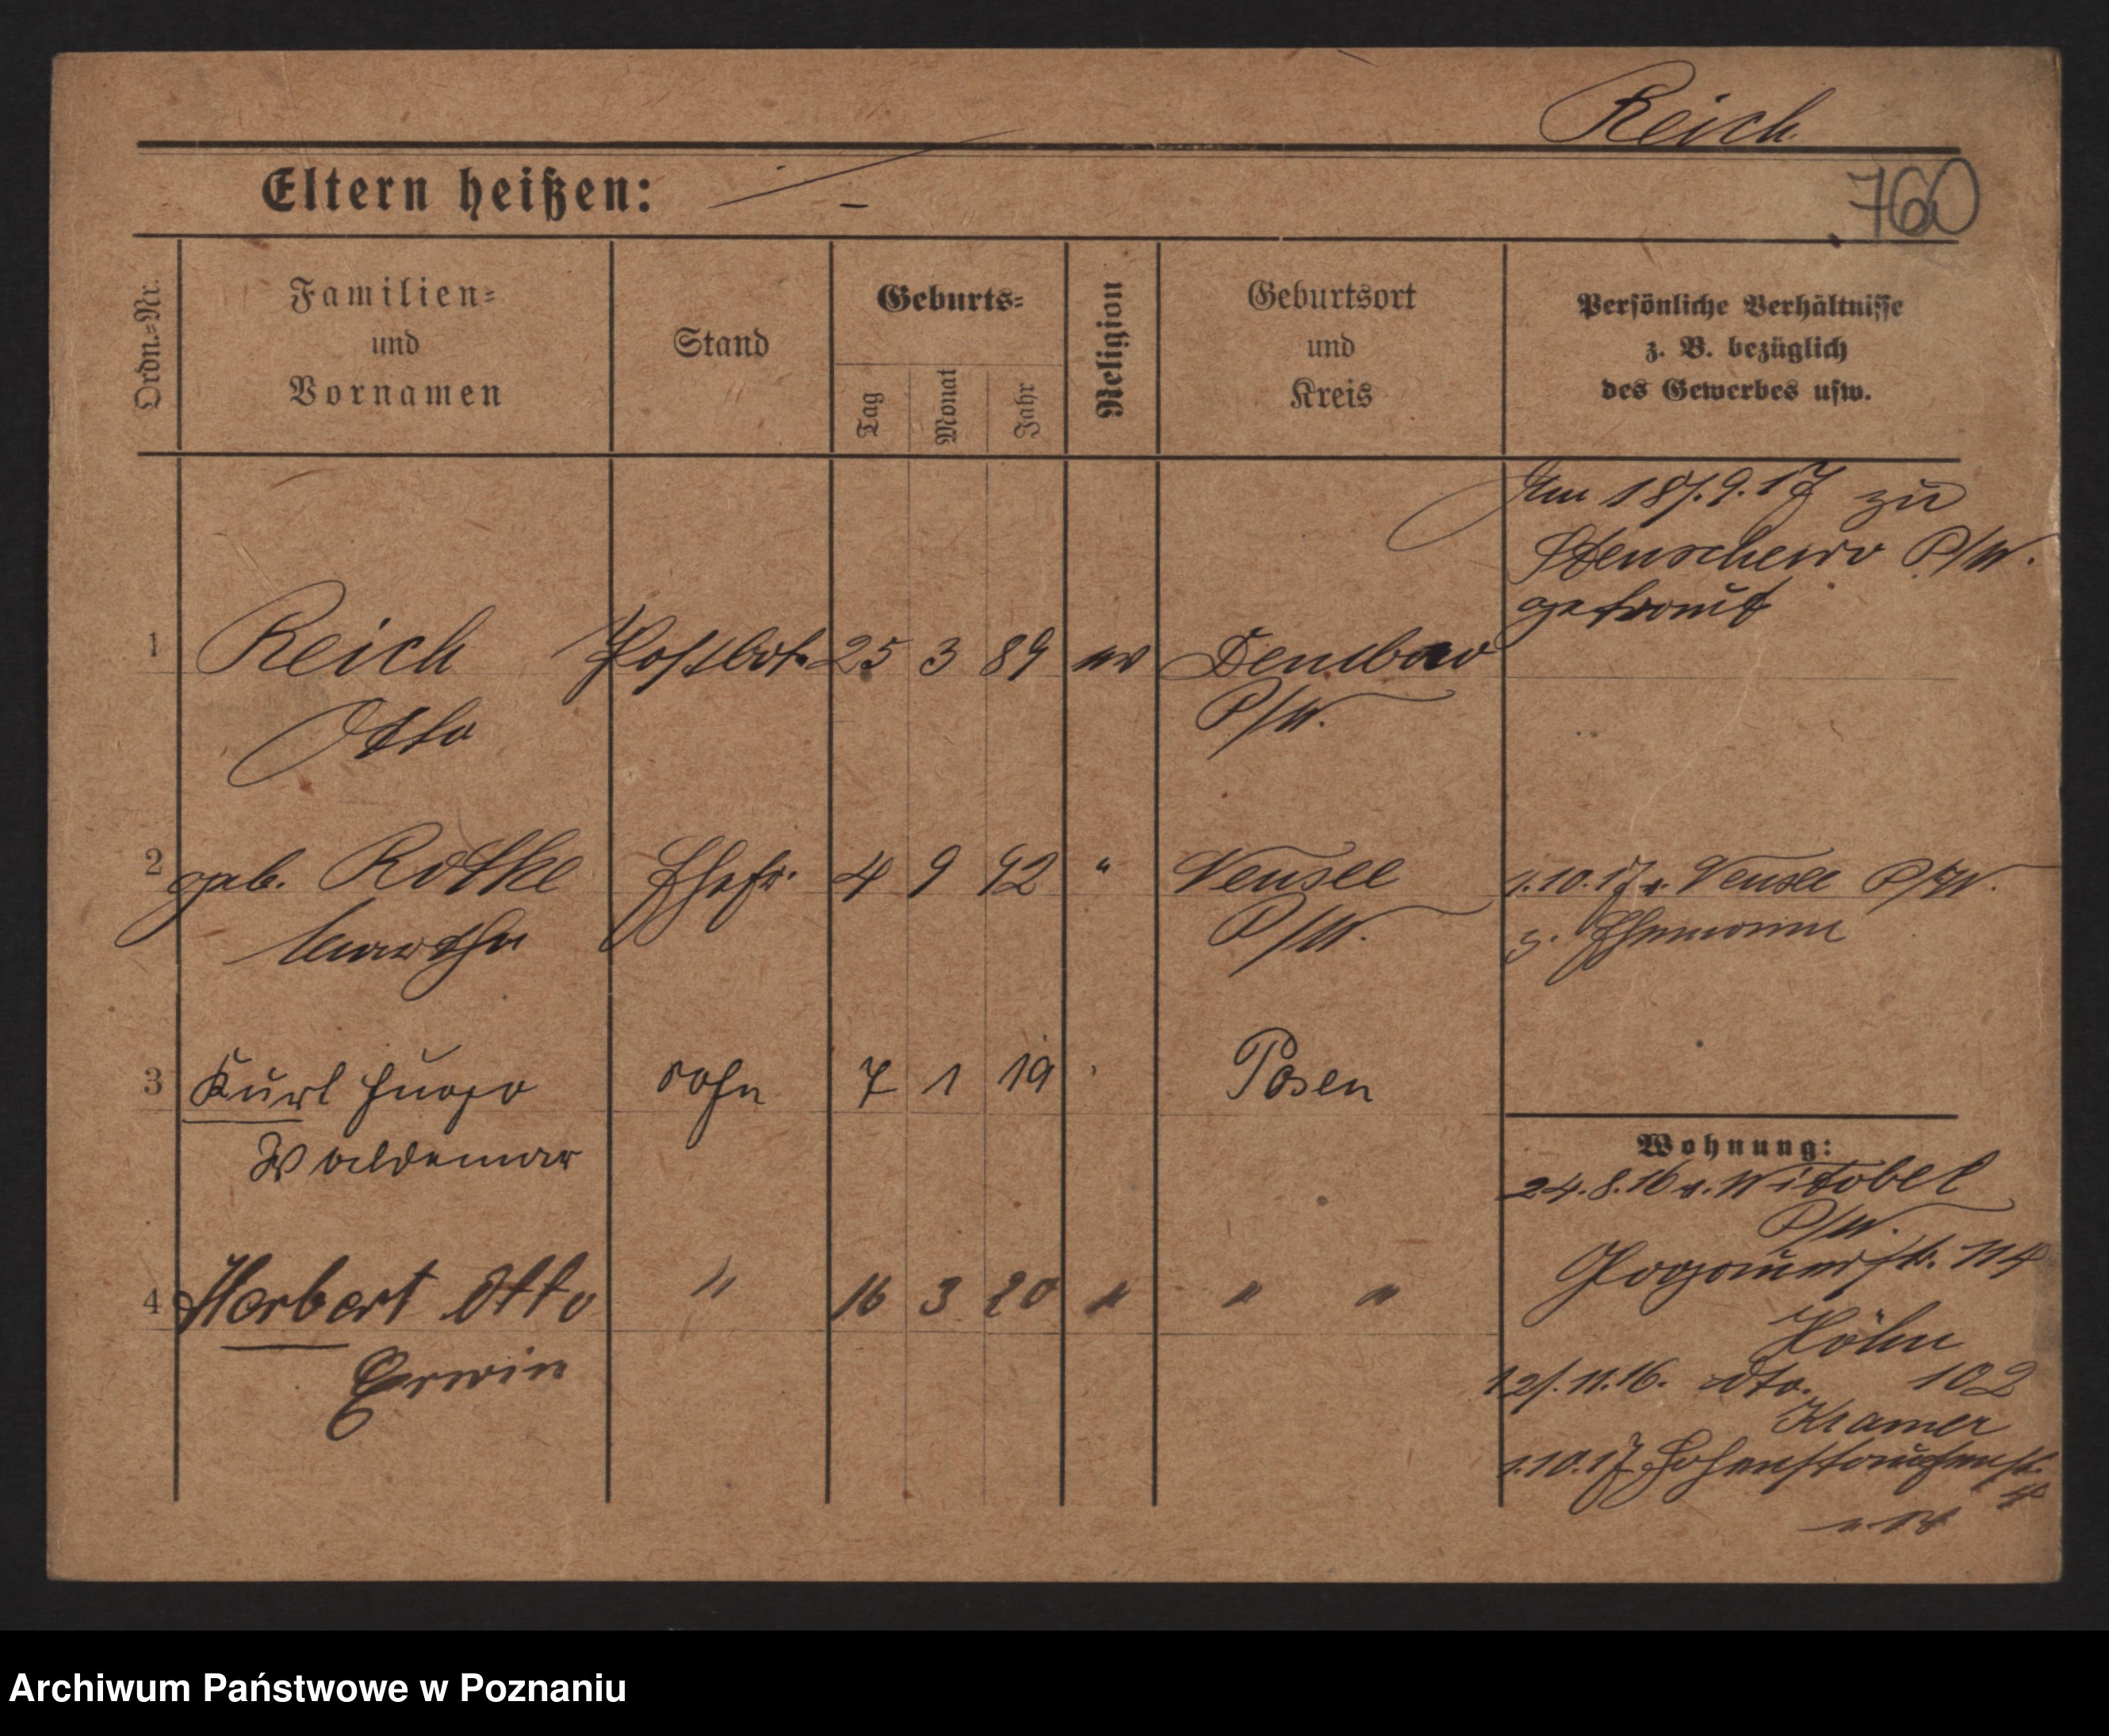 Reich
Eltern heißen: —
760
Ordn.-Nr.
Familien-
und
Vornamen
Stand
Geburts-
Tag
Monat
Jahr
Religion
Geburtsort
und
Kreis
Persönliche Verhältnisse
z. B. bezüglich
des Gewerbes usw.
Am 18/.9.17 zu
P/W.
getraut
1 Reich Postbot. 25 3 89 ev
Otto P/W.
2 geb. Rothe Ehefr. 4 9 92 " Neusee 1.10.17 v. Neusee P/W.
Martha P/W. z. Ehemann
3 Kurt Hugo Sohn 7 1 19 Posen
Waldemar
Wohnung:
24.8.16 v. Witobel
P/W.
4 Herbert Otto " 16 3 20 " " " 114
Erwin
Höhn
12/.11.16. dto. 102
Kramer
1.10.17 Hohenstaufenstr.
Archiwum Państwowe w Poznaniu